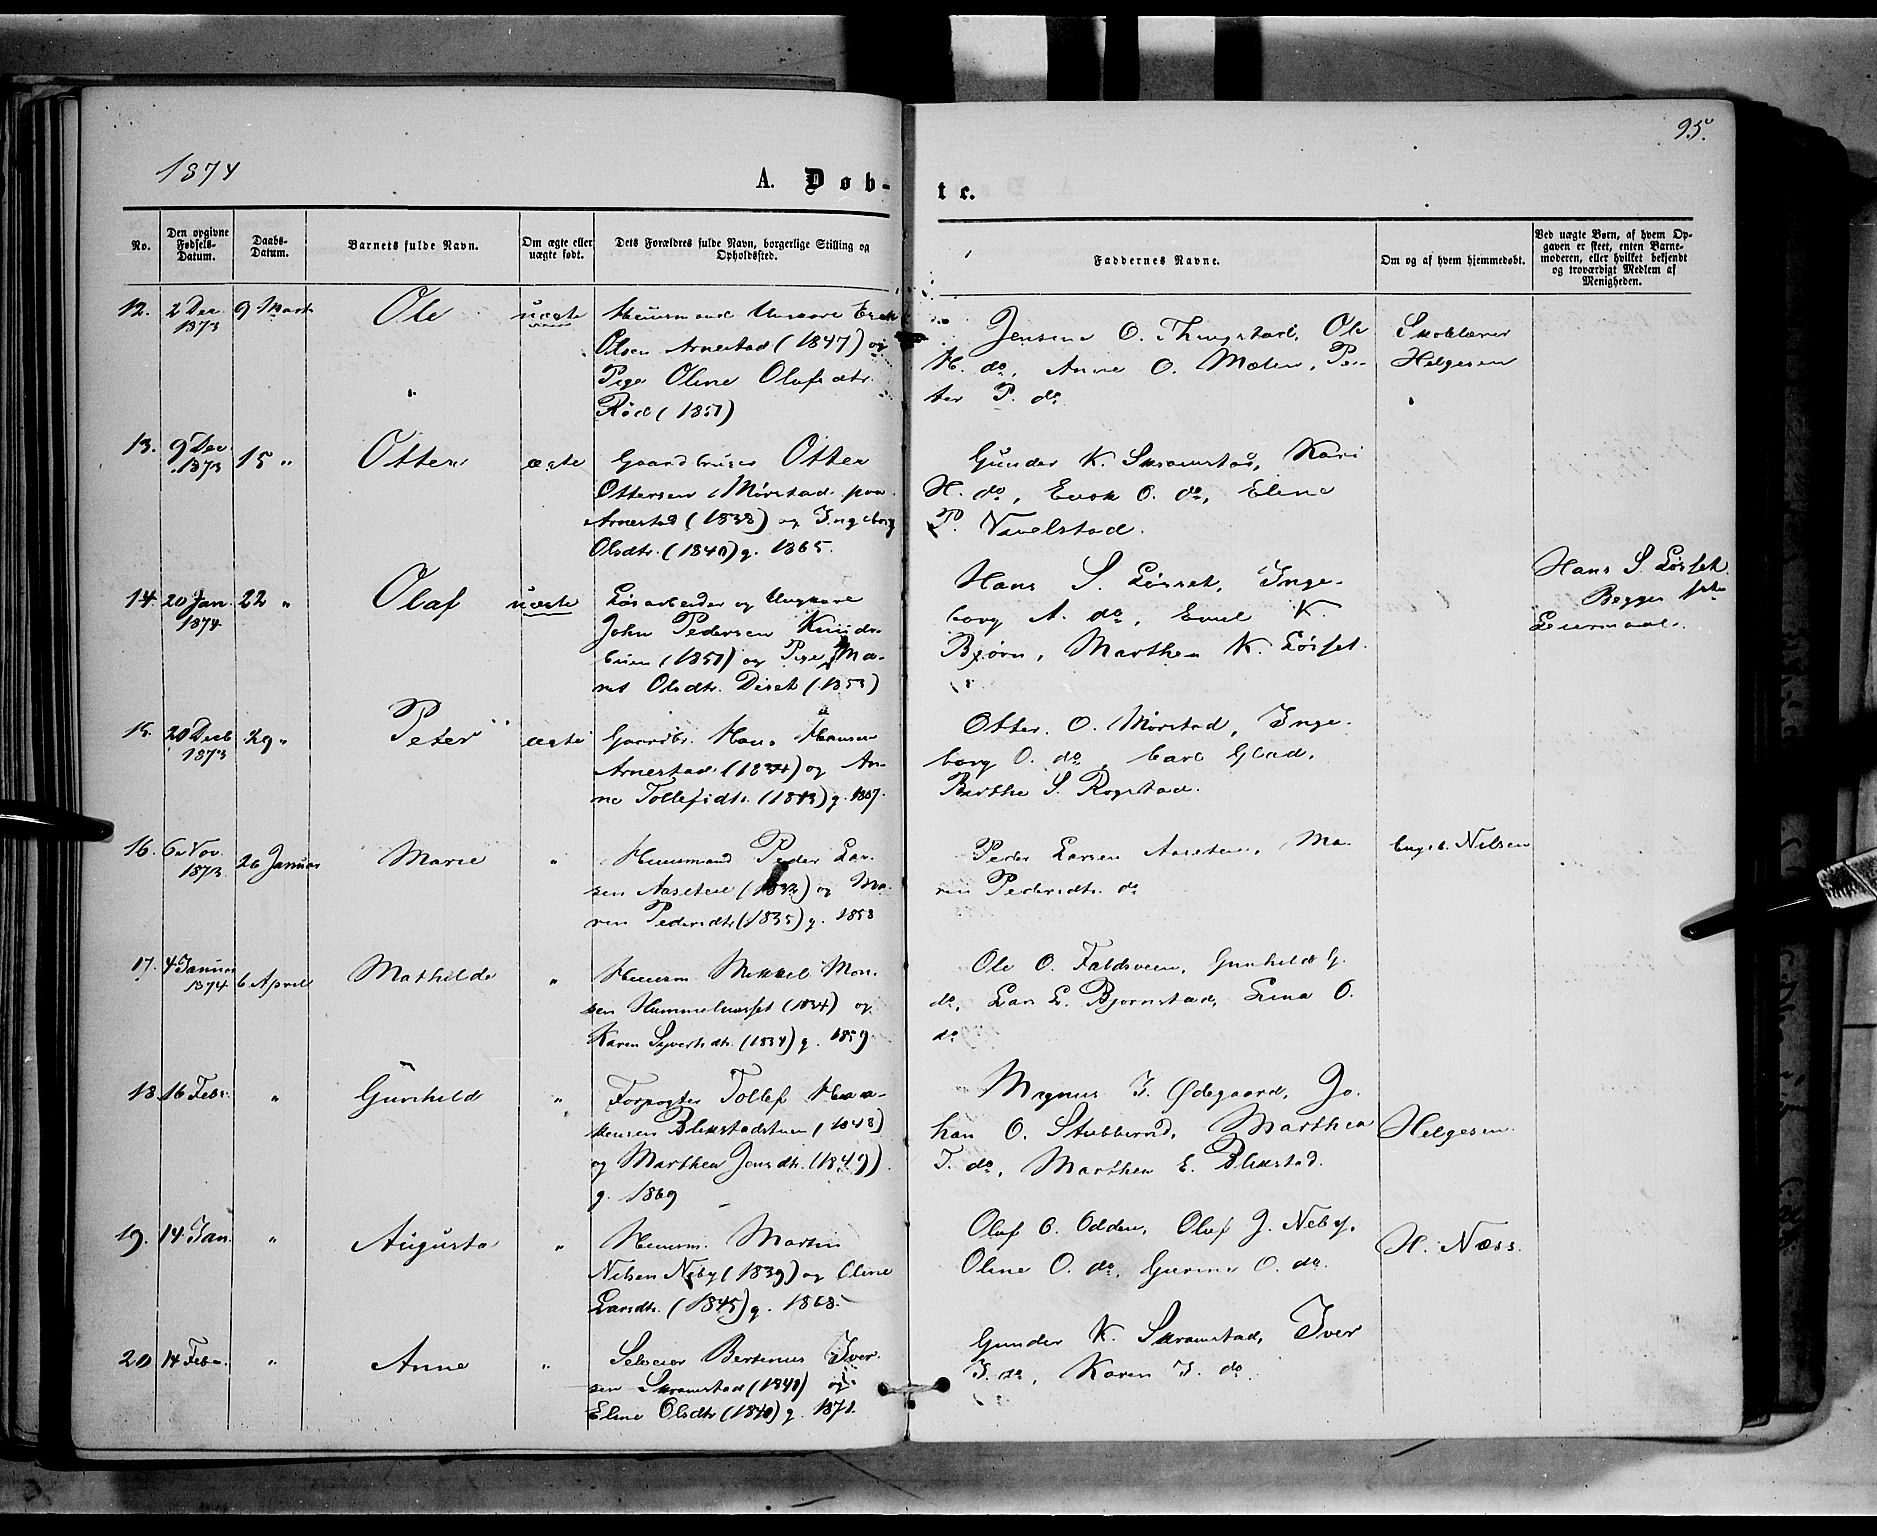 95.
1874
A. Døb-
te.
No.
Den opgivne Fødsels-Datum.
Daabs-Datum.
Barnets fulde Navn.
Om ægte eller uægte født.
Dets Forældres fulde Navn, borgerlige Stilling og Opholdssted.
Faddernes Navne.
Om og af hvem hjemmedøbt.
Ved uægte Børn, af hvem Opgaven er skeet, enten Barnemoderen, eller hvilket bekjendt og troværdigt Medlem af Menigheden.
12. 2 Dec. 1873 9 Marts Ole uægte
Huusmand Ungkarl
Olsen Arnestad (1847) og
Pige Oline Olafsdtr.
Rød (1851)
Jensine O. Thingstad, Ole
H. do, Anne O. Mælen, Pe-
ter P. do
Skolelærer
Helgesen
13. 9 Dec 1873 15 " Otter ægte
Gaardbruger Otter
Ottersen Mørstad paa
Arnestad (1838) og Ingeborg
Olsdtr. (1840) g. 1865.
Gunder K. Skramstad, Kari
H. do, Even O. do, Eline
P. Navelstad.
14. 20 Jan. 1874 22 " Olaf uægte
Løsarbeider og Ungkarl
John Pedersen Knuds-
(1851) og Pige Ma-
ret Olsdtr. Diset (1853)
Hans S. Løsset, Inge-
borg A. do, Emil K.
Bjørn, Marthea K. Løsset.
Hans S. Løsset.
Begges 1ste
Leiermaal.
15. 20 Decb 1873 29 " Peter ægte
Gaardbr. Hans Hansen
Arnestad (1834) og An-
ne Tollefsdtr. (1843) g. 1867.
Otter O. Mørstad, Inge-
borg O. do, Carl Glad,
Berthe S. Rogstad.
16. 6 Nov. 1873 26 Januar Marie "
Huusmand Peder Lar-
sen Aaseteie (1832) og Ma-
ren Pedersdtr (1835) g. 1858
Peder Larsen Aaseteie, Ma-
ren Pedersdtr. do
Engeb. Nilsen
17. 4 Januar 1874 6 April Mathilde "
Huusm. Mikkel Mon-
sen (1834) og
Karen Syvertsdtr. (1834) g. 1859.
Ole O. Faldsveen, Gunhild G.
do, Lars L. Bjørnstad, Lina O.
do
18. 16 Febr. " Gunhild "
Forpagter Tollef Haa-
kensen Blikstadstuen (1848)
og Marthea Jensdtr. (1849)
g. 1869
Magnus I. Ødegaard, Jo-
han O. Stubberud, Marthea
T. do, Marthea E. Blikstad.
Helgesen.
19. 14 Jan. " Augusta "
Huusm. Martin
Nilsen Neby (1839) og Oline
Larsdtr. (1845) g. 1868.
Olaf O. Odden, Oluf J. Neby,
Oline O. do, Gurine O. do.
H. Næss.
20 14 Febr. " Anne "
Selveier Bertinus Iver-
sen Skramstad (1848) og
Eline Olsdtr (1840) g. 1871.
Gunder K. Skramstad, Iver
I. do, Karen I. do.